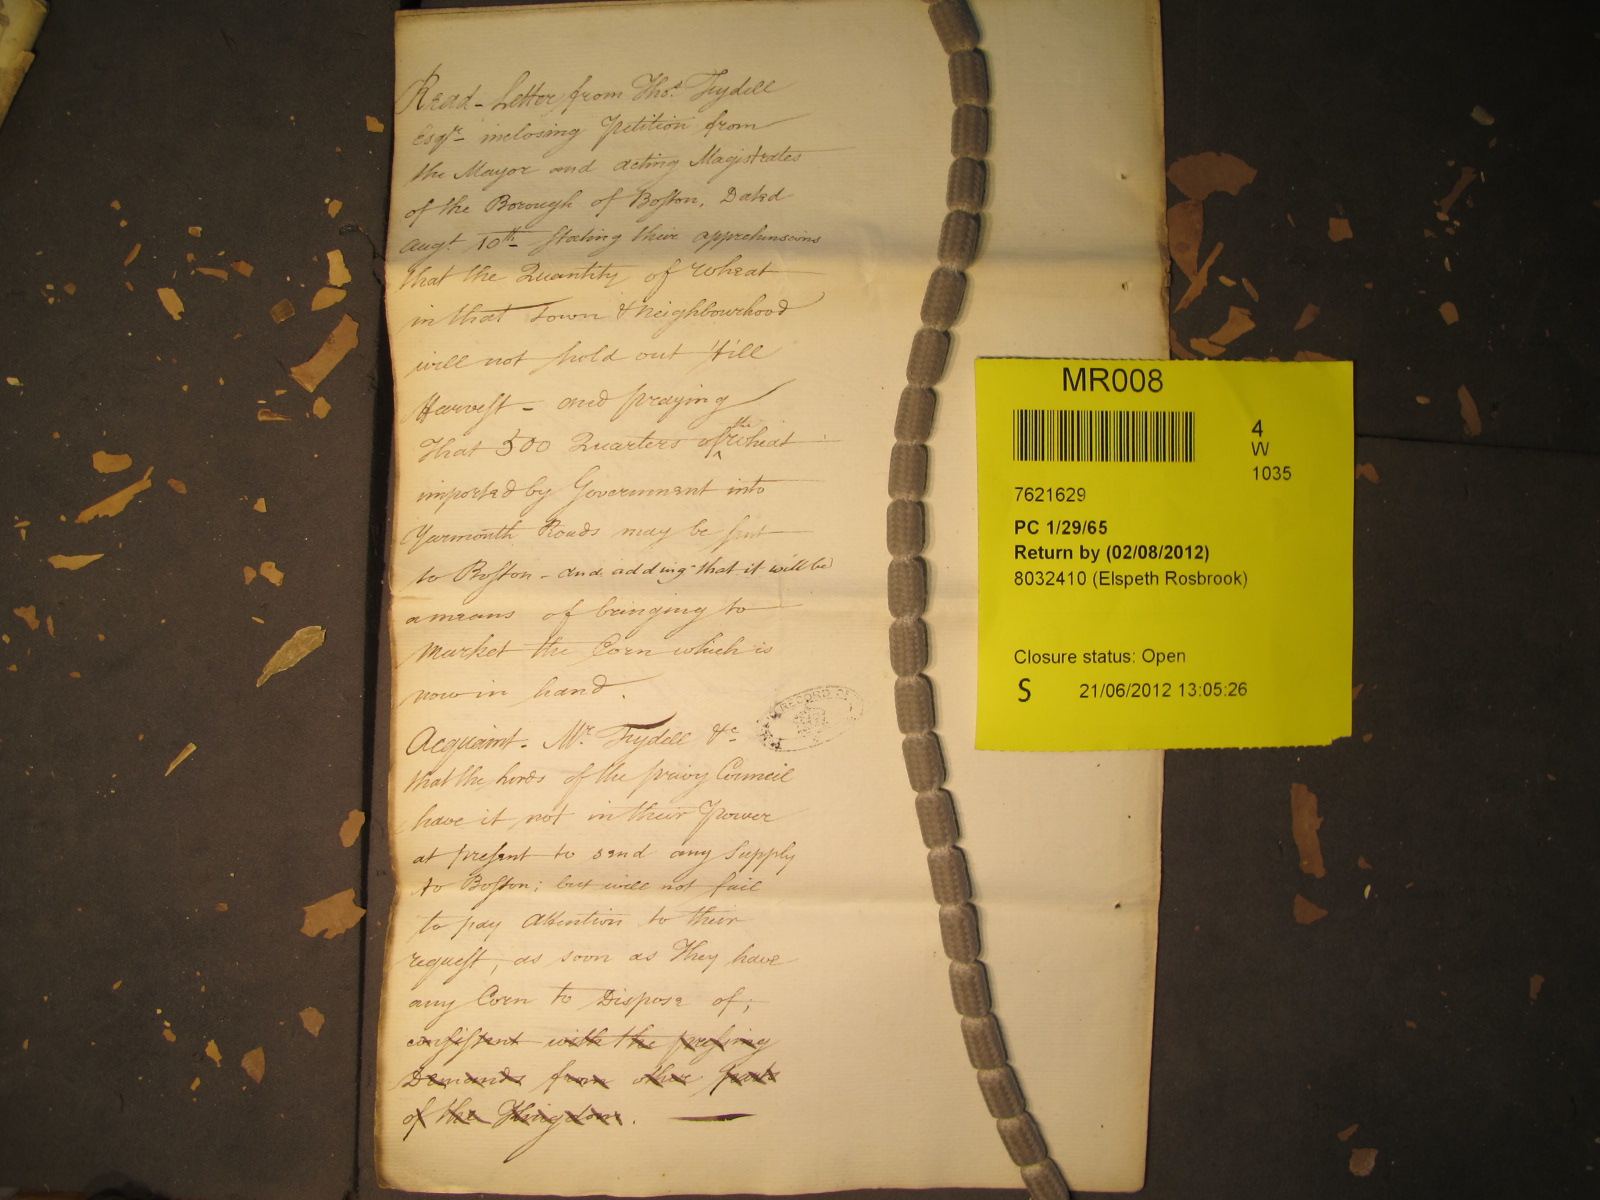 Read - Letter from Thos. Fydell
Esqr. inclosing Petition from
the Mayor and acting Magistrates
of the Borough of Boston, Dated
Augt. 10th stating their apprehensions
that the Quantity of Wheat
in that Town & Neighbourhood
will not hold out 'till
Harvest - and praying
That 500 Quarters of the Wheat
imported by Government into
Yarmouth Roads may be sent
to Boston - and adding that it will be
a means of bringing to
Market the Corn which is
now in hand.
Acquaint. Mr. Fydell &c
that the Lords of the privy Council
have it not in their Power
at present to send any Supply
to Boston; but will not fail
to pay Attention to their
request, as soon as They have
any Corn to Dispose of;
consistent with the pressing
Demands from other parts
of the Kingdom.
RECORD
MR008
4
W
1035
7621629
PC 1/29/65
Return by (02/08/2012)
8032410 (Elspeth Rosbrook)
Closure status: Open
S 21/06/2012 13:05:26